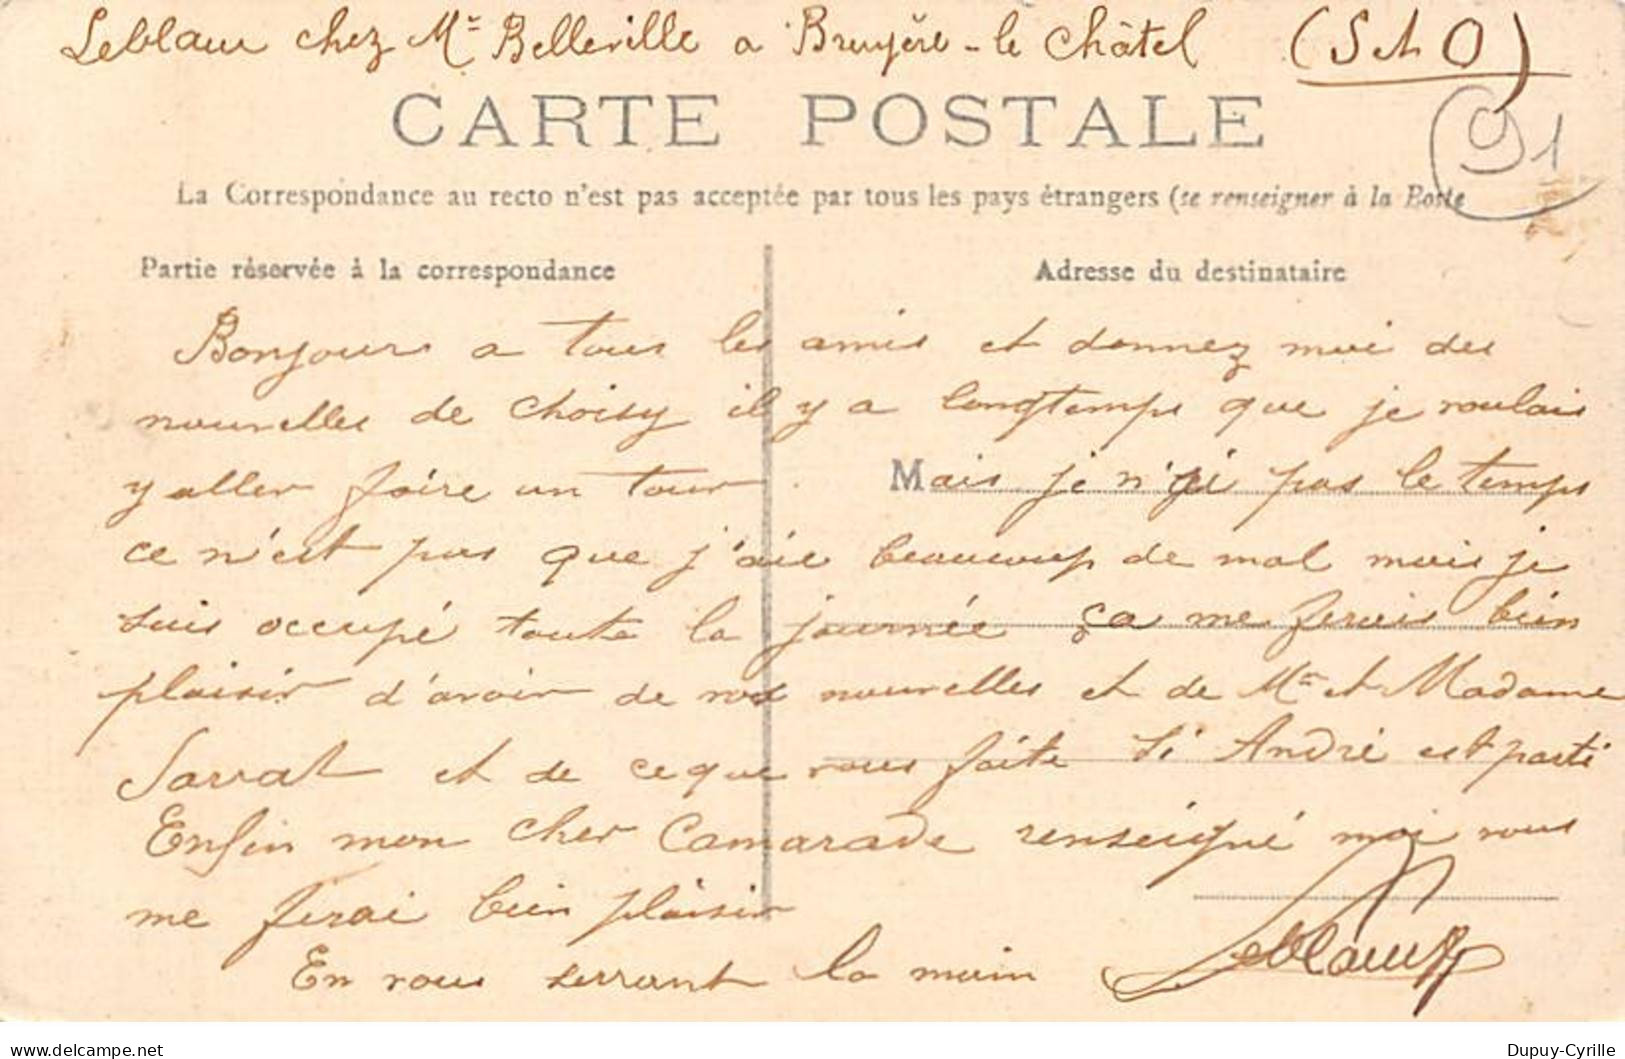 Leblanc chez Mr Belleville a Bruyère-le Châtel (S et O)
91
CARTE POSTALE
La Correspondance au recto n'est pas acceptée par tous les pays étrangers (se renseigner à la Poste
Partie réservée à la correspondance
Adresse du destinataire
Bonjours a tous les amis et donnez moi des
nouvelles de Choisy il y a longtemps que je voulais
y aller faire un tour. Mais je n'ai pas le temps
ce n'est pas que j'aie beaucoup de mal mais je
suis occupé toute la journée ça me ferais bien
plaisir d'avoir de vos nouvelles et de Mr et Madame
Sarrat et de ce que vous faite si André est parti
Enfin mon cher Camarade renseigné moi vous
me ferai bien plaisir
En vous serrant la main Leblanc
delcampe.net
Dupuy-Cyrille